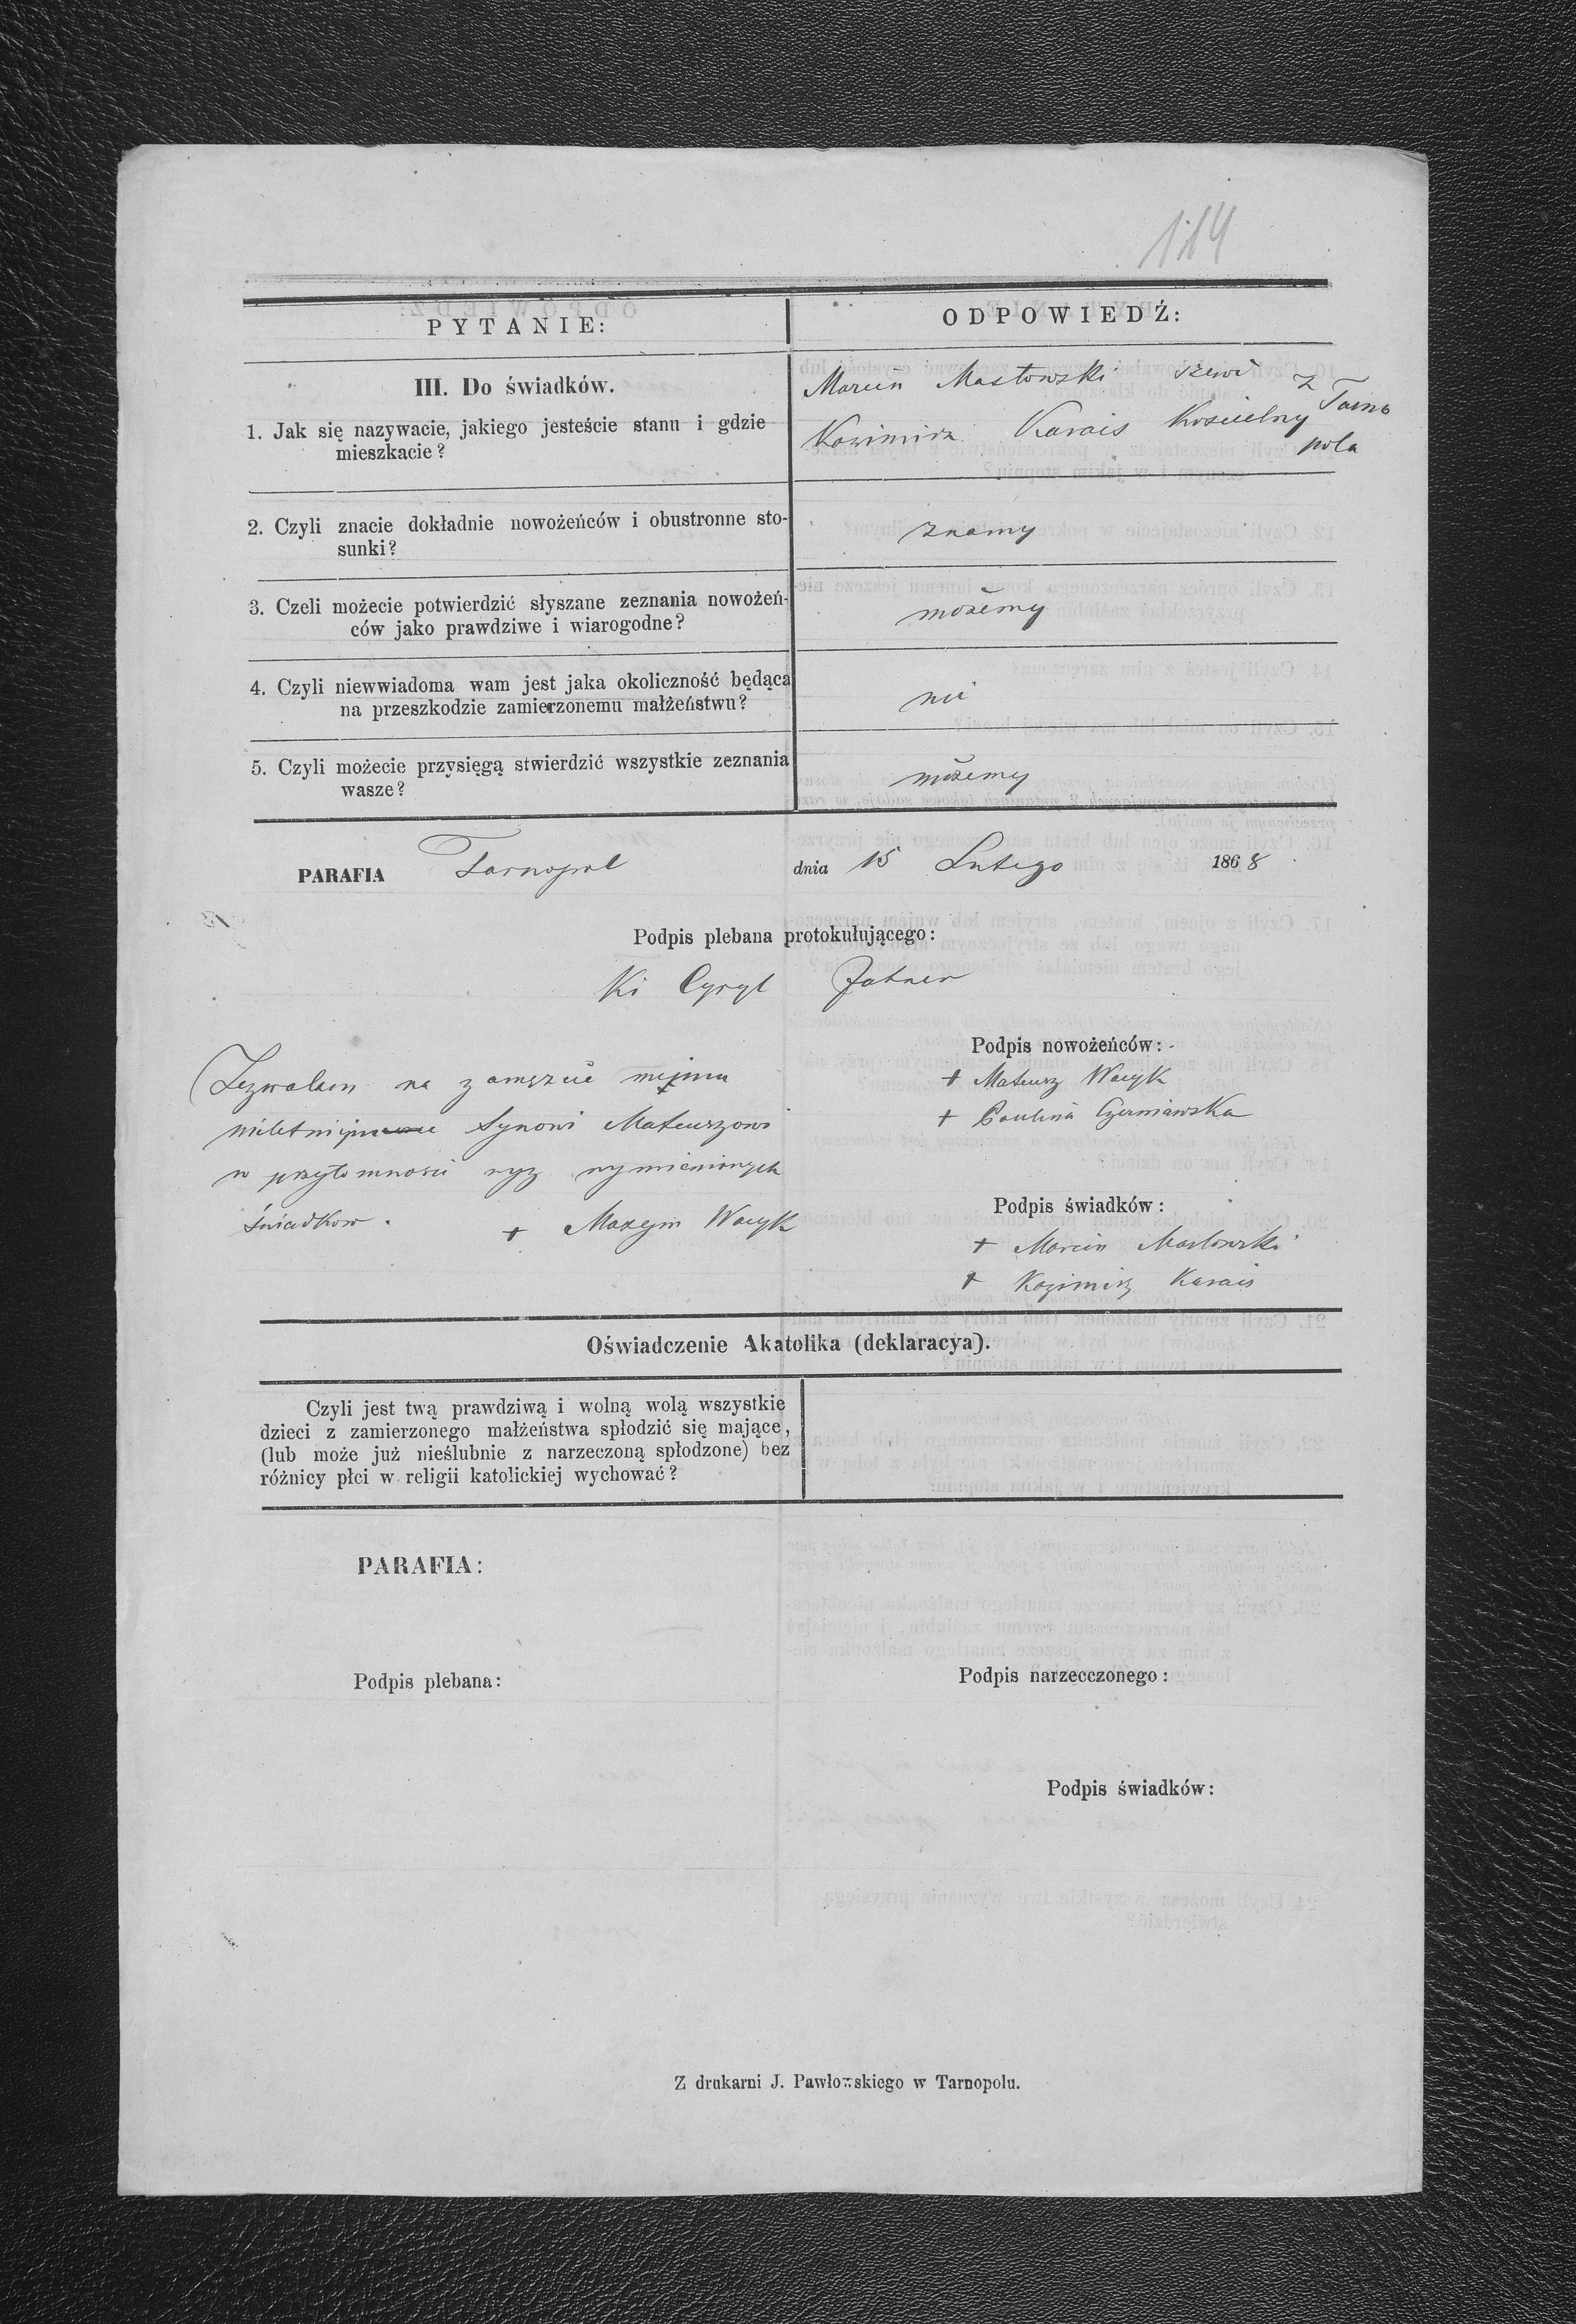 114
PYTANIE:
ODPOWIEDŹ:
III. Do świadków.
1. Jak się nazywacie, jakiego jesteście stanu i gdzie
mieszkacie?
Marcin Masłowski szewc z Tarno
Kazimirz Karais Kościelny pola
2. Czyli znacie dokładnie nowożeńców i obustronne sto-
sunki?
znamy
3. Czeli możecie potwierdzić słyszane zeznania nowożeń-
ców jako prawdziwe i wiarogodne?
możemy
4. Czyli niewwiadoma wam jest jaka okoliczność będąca
na przeszkodzie zamierzonemu małżeństwu?
nie
5. Czyli możecie przysięgą stwierdzić wszystkie zeznania
wasze?
możemy
PARAFIA Tarnopol dnia 15 Lutego 1868
Podpis plebana protokułującego:
Cyryl
Podpis nowożeńców:
+ Mateusz Wacyk
+ Paulina Czerniawska
Zezwalam na zamęzcie memu
Synowi Mateuszowi
w przytomnosci wyz wymienionych
świadkow.
+ Maxym Wacyk
Podpis świadków:
+ Marcin Masłowski
+ Kazimirz Karais
Oświadczenie Akatolika (deklaracya).
Czyli jest twą prawdziwą i wolną wolą wszystkie
dzieci z zamierzonego małżeństwa spłodzić się mające,
(lub może już nieślubnie z narzeczoną spłodzone) bez
różnicy płci w religii katolickiej wychować?
PARAFIA:
Podpis plebana:
Podpis narzecczonego:
Podpis świadków:
Z drukarni J. Pawłowskiego w Tarnopolu.